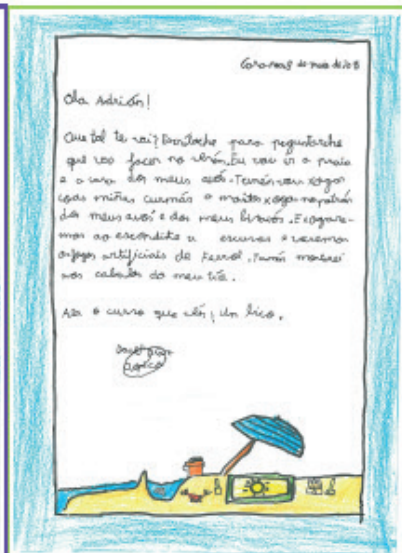 de maio de
Ola Adrián!
Que tal te vai? Escríboche para preguntarche
que vas facer no verán. Eu vou ir a praia
e a casa dos meus avós. Tamén vou xogar
coas miñas curmás a moitos xogos no patrón
dos meus avós e dos meus bisavós. E xogare-
mos ao escondite a escuras e veremos
os fogos artificiais de Ferrol. Tamén montarei
nos cabalos do meu tío.
Ata o curso que vén, un bico.